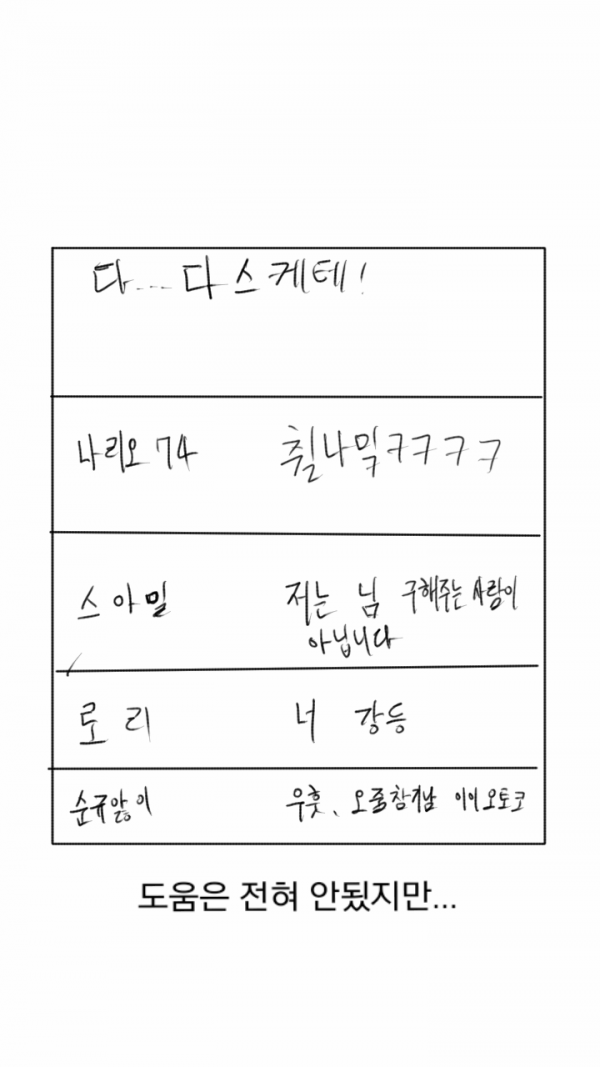 다... 다스케테!
나리오 74 췰나믹ㅋㅋㅋㅋ
스아밀 저는 님 구해주는 사람이
아닙니다
로리 너 강등
순규앓이 우훗、오줌참기남 이이오토코
도움은 전혀 안됬지만...